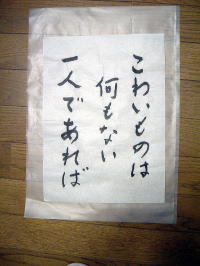 こわいものは
何もない
一人であれば